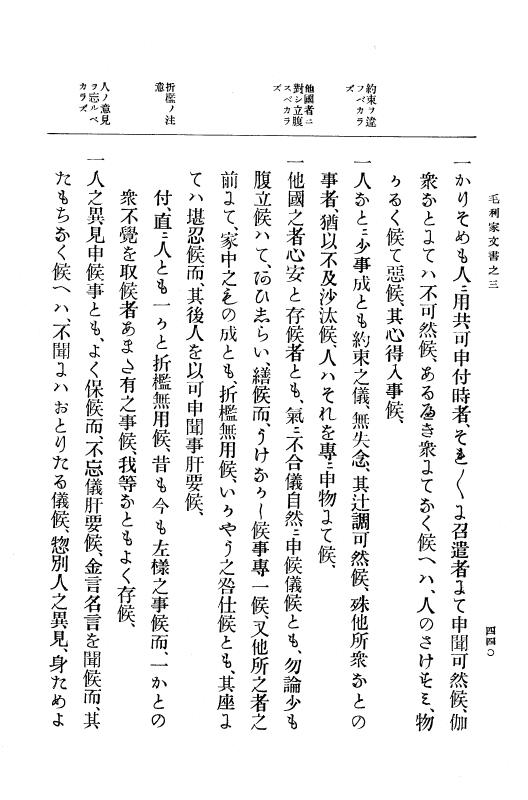 毛利家文書之三
四四〇
一かりそめも人ニ用共可申付時者、それ〳〵ニ召遣者にて申聞可然候、伽
衆なとにてハ不可然候、ある届き衆にてなく候へハ、人のさけすミ、物
うるく候て惡候、其心得入事候、
約束ヲ違
フベカラ
ズ
一人なとニ少事成とも約束之儀、無失念、其辻調可然候、殊他所衆なとの
事者、猶以不及沙汰候、人ハそれを專ニ申物にて候、
他國者ニ
對シ立腹
スベカラ
ズ
一他國之者心安と存候者とも、氣ニ不合儀自然ニ申候儀候とも、勿論少も
腹立候ハて、あひしらい、繕候而、うけなかし候事專一候、又他所之者之
前にて、家中之ものの成とも、折檻無用候、いかやう之咎仕候とも、其座に
てハ堪忍候而、其後人を以可申聞事肝要候、
折檻ノ注
意
付、直ニ人ともーかと折檻無用候、昔も今も左様之事候而、一かとの
衆不覺を取候者あまた有之事候、我等なともよく存候、
人ノ意見
ヲ忘ルベ
カラズ
一人之異見申候事とも、よく保候而、不忘儀肝要候、金言名言を聞候而、其
たもちなく候へハ、不聞にハおとりたる儀候、惣別人之異見、身ためよ